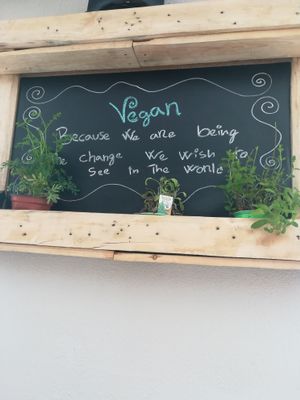 Vegan
Because we are being
the change We Wish to
See in the World